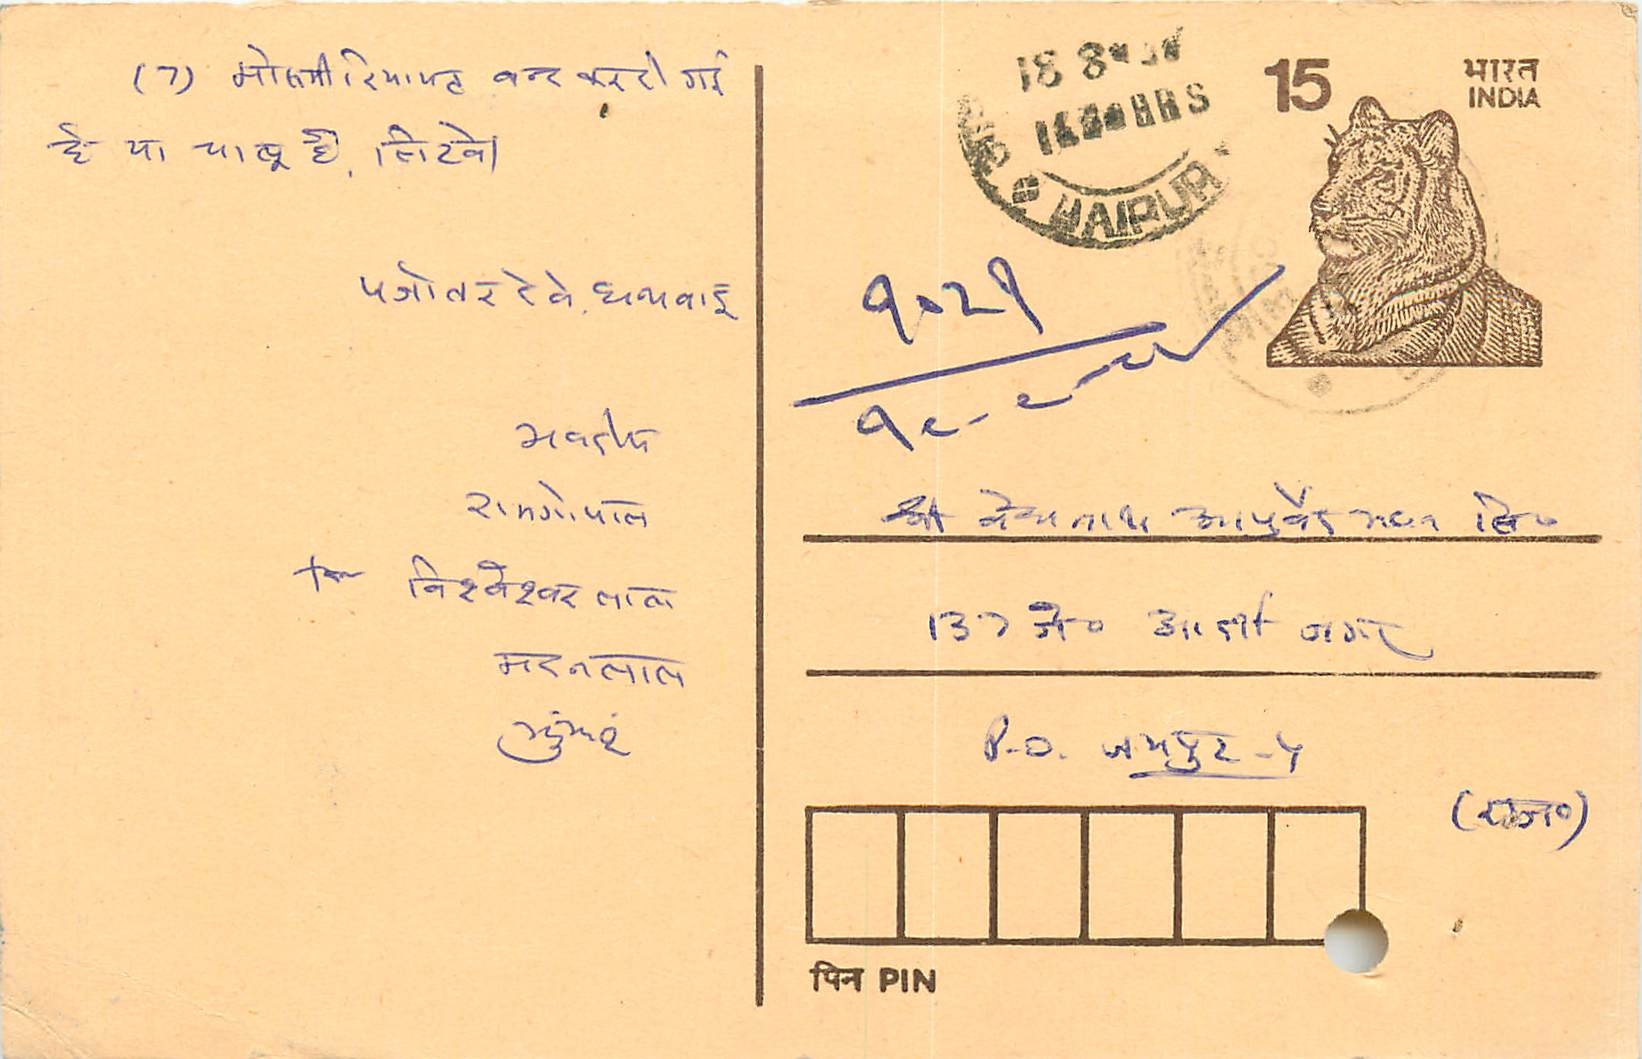 (7) मौसमी रियायत बन्द कर दी गई
है या चालू है, लिखें।
पत्रोत्तर देवें, धन्यवाद
भवदीय
रामगोपाल
विश्वेश्वर लाल
मदनलाल
18 8
HRS
JAIPUR
15
भारत
INDIA
१०२१
श्री वैद्यनाथ आयुर्वेद भवन लि०
137 जे० आदर्श नगर
P.O. जयपुर-4
(राज०)
पिन PIN